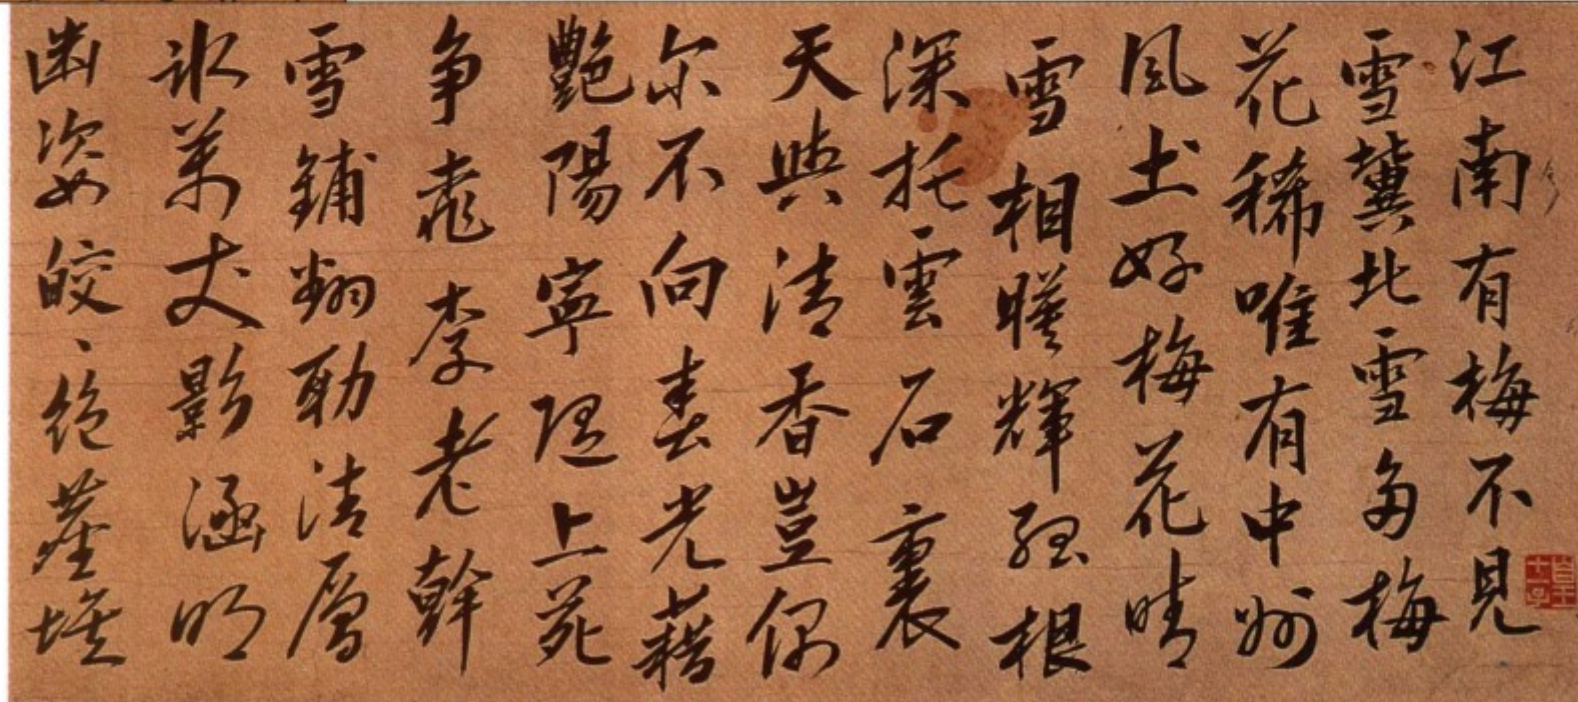 皇十一子
江南有梅不見
雪冀北雪多梅
花稀唯有中州
風土好梅花晴
雪相暎輝孤根
深托雲石裏
天與清香豈偶
尔不向春光藉
艷陽寧隨上苑
争桃李老幹
雪鋪翻勁清層
氷萬丈影涵明
幽姿皎、絶塵埃